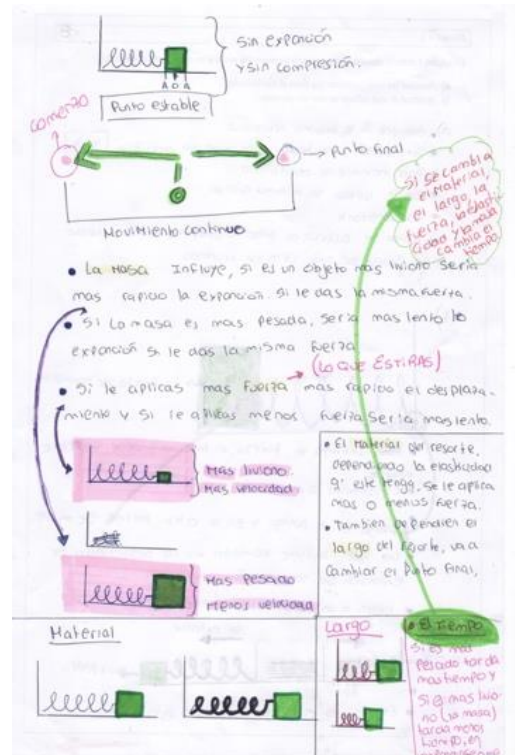 Sin expanción
y sin compresión.
A O A
Punto estable
comenzo
Punto final
Movimiento continuo
Si se cambia
el material,
el largo, la
fuerza, la elasti
cidad y la masa
cambia el
tiempo
• La Masa Influye, si es un objeto mas liviano seria
mas rapido la expanción. Si le das la misma fuerza.
• Si la masa es mas pesada, seria mas lento la
expanción si le das la misma fuerza
(LO QUE ESTIRAS)
• Si le aplicas mas fuerza mas rapido el desplaza-
miento y si le aplicas menos fuerza seria mas lento.
Mas liviano.
Mas velocidad
Mas Pesado
Menos velocidad
• El Material del resorte,
dependiendo la elasticidad
q' este tenga, se le aplica
mas o menos fuerza.
• Tambien dependien el
largo del resorte, va a
cambiar el Punto Final,
Material
Largo
• El Tiempo
Si es mas
pesado tarda
mas tiempo y
Si es mas livia
no (la masa)
tarda menos
tiempo, en